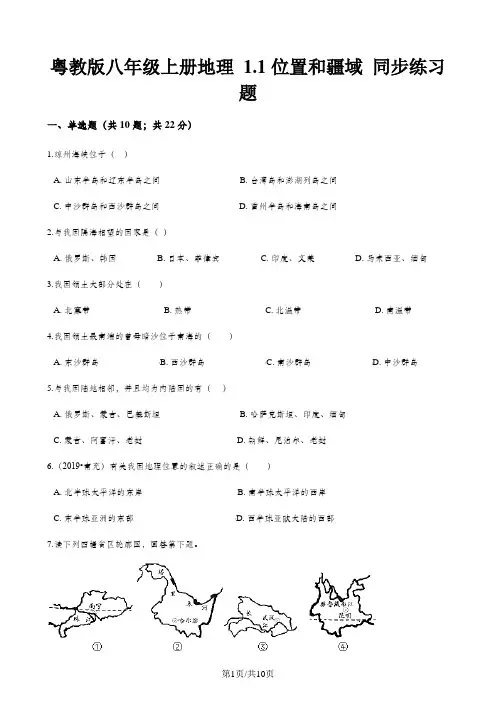 粤教版八年级上册地理 1.1位置和疆域 同步练习
题
一、单选题（共10题；共22分）
1.琼州海峡位于（ ）
A. 山东半岛和辽东半岛之间 B. 台湾岛和澎湖列岛之间
C. 中沙群岛和西沙群岛之间 D. 雷州半岛和海南岛之间
2.与我国隔海相望的国家是（ ）
A. 俄罗斯、韩国 B. 日本、菲律宾 C. 印度、文莱 D. 马来西亚、缅甸
3.我国领土大部分处在（ ）
A. 北寒带 B. 热带 C. 北温带 D. 南温带
4.我国领土最南端的曾母暗沙位于南海的（ ）
A. 东沙群岛 B. 西沙群岛 C. 南沙群岛 D. 中沙群岛
5.与我国陆地相邻，并且均为内陆国的有（ ）
A. 俄罗斯、蒙古、巴基斯坦 B. 哈萨克斯坦、印度、缅甸
C. 蒙古、阿富汗、老挝 D. 朝鲜、尼泊尔、老挝
6.（2019•南充）有关我国地理位置的叙述正确的是（ ）
A. 北半球太平洋的东岸 B. 南半球太平洋的西岸
C. 东半球亚洲的东部 D. 西半球亚欧大陆的西部
7.读下列四幅省区轮廓图，回答第下题。
南宁
哈尔滨
长 武汉 江
雅鲁藏布江 昆明
① ② ③ ④
第1页/共10页